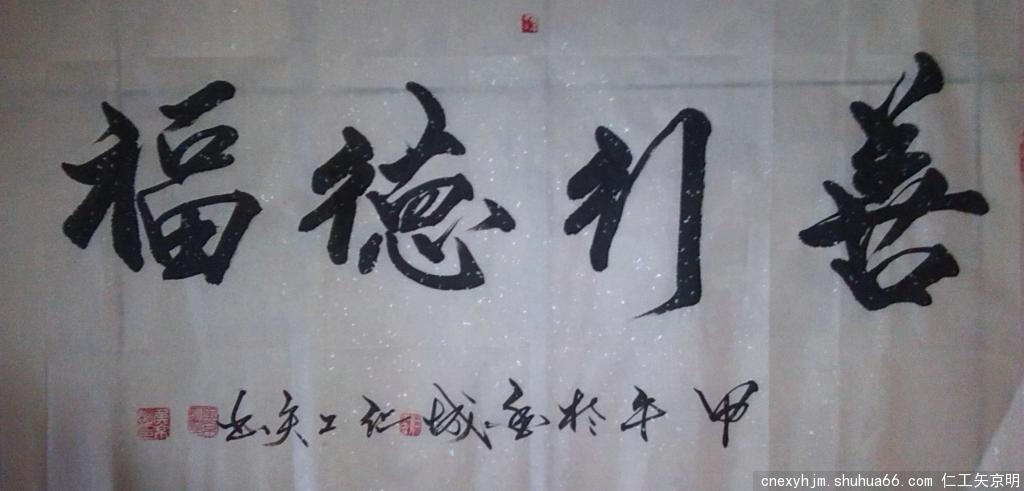 善行德福
甲午於金城仁工矢
cnexyhjm.shuhua66.com 仁工矢京明